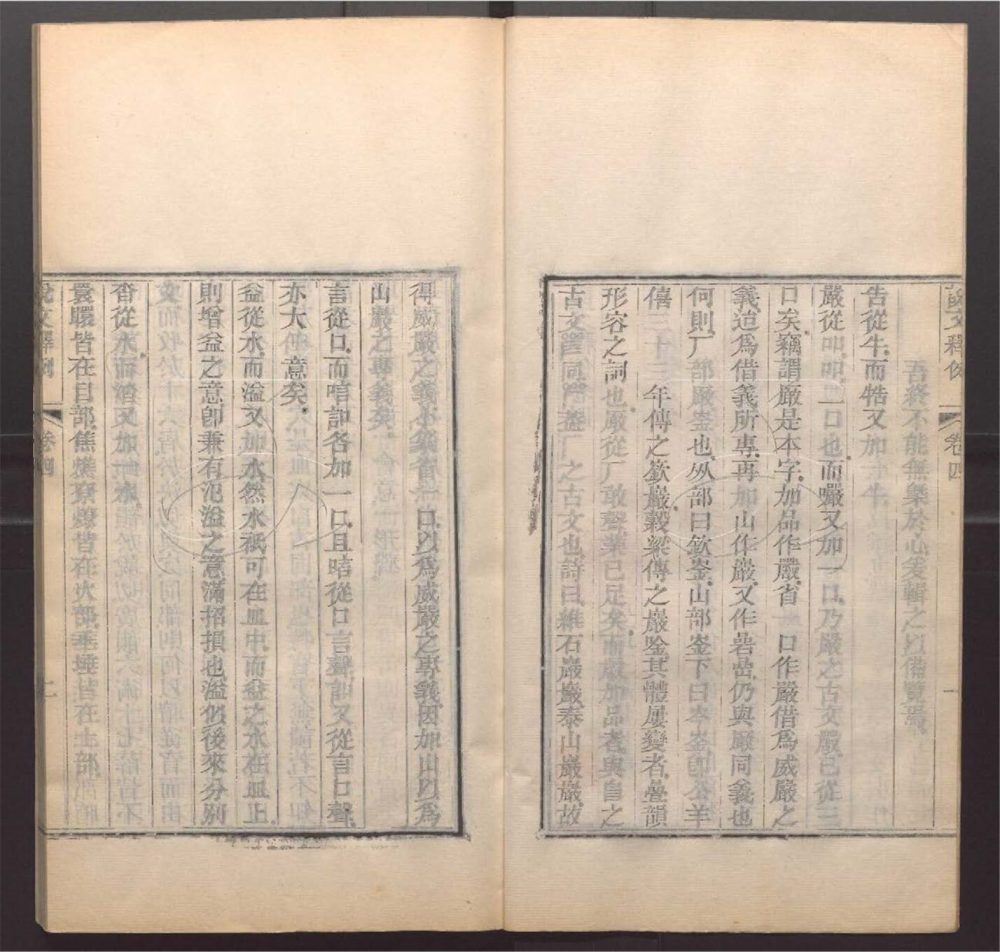 說文釋例 卷四 一
吾終不能無樂於心爰輯之以備覽焉
告從牛而牿又加牛
嚴從吅吅二口也而嚴又加一口乃嚴之古文嚴已從三
口矣竊謂厰是本字加品作嚴省一口作嚴借爲威嚴之
義迨爲借義所專再加山作巖又作碞嵒仍與厰同義也
何則厂部厰崟也欠部曰欽崟山部崟下曰岑崟卽公羊
僖三十三年傳之嶔巖穀梁傳之巖唫其體屢變者疊韻
形容之詞也厰從厂敢聲業已足矣而嚴加品者與自之
古文同意厂之古文也詩曰維石巖巖泰山巖巖故
得威嚴之義小篆省一口以爲威嚴之專義因加山以爲
山巖之專義矣
言從口而唁卽各加一口且㖧從口言聲唁又從言口聲
亦大意矣
益從水而溢又加水然水祇可在皿中而益之水在皿上
則增益之意卽兼有汜溢之意滿招損也溢似後來分別
沓從水而涾又加水
睘瞏皆在目部焦燋寮燎皆在火部垂埵皆在土部
說文釋例 卷四 二